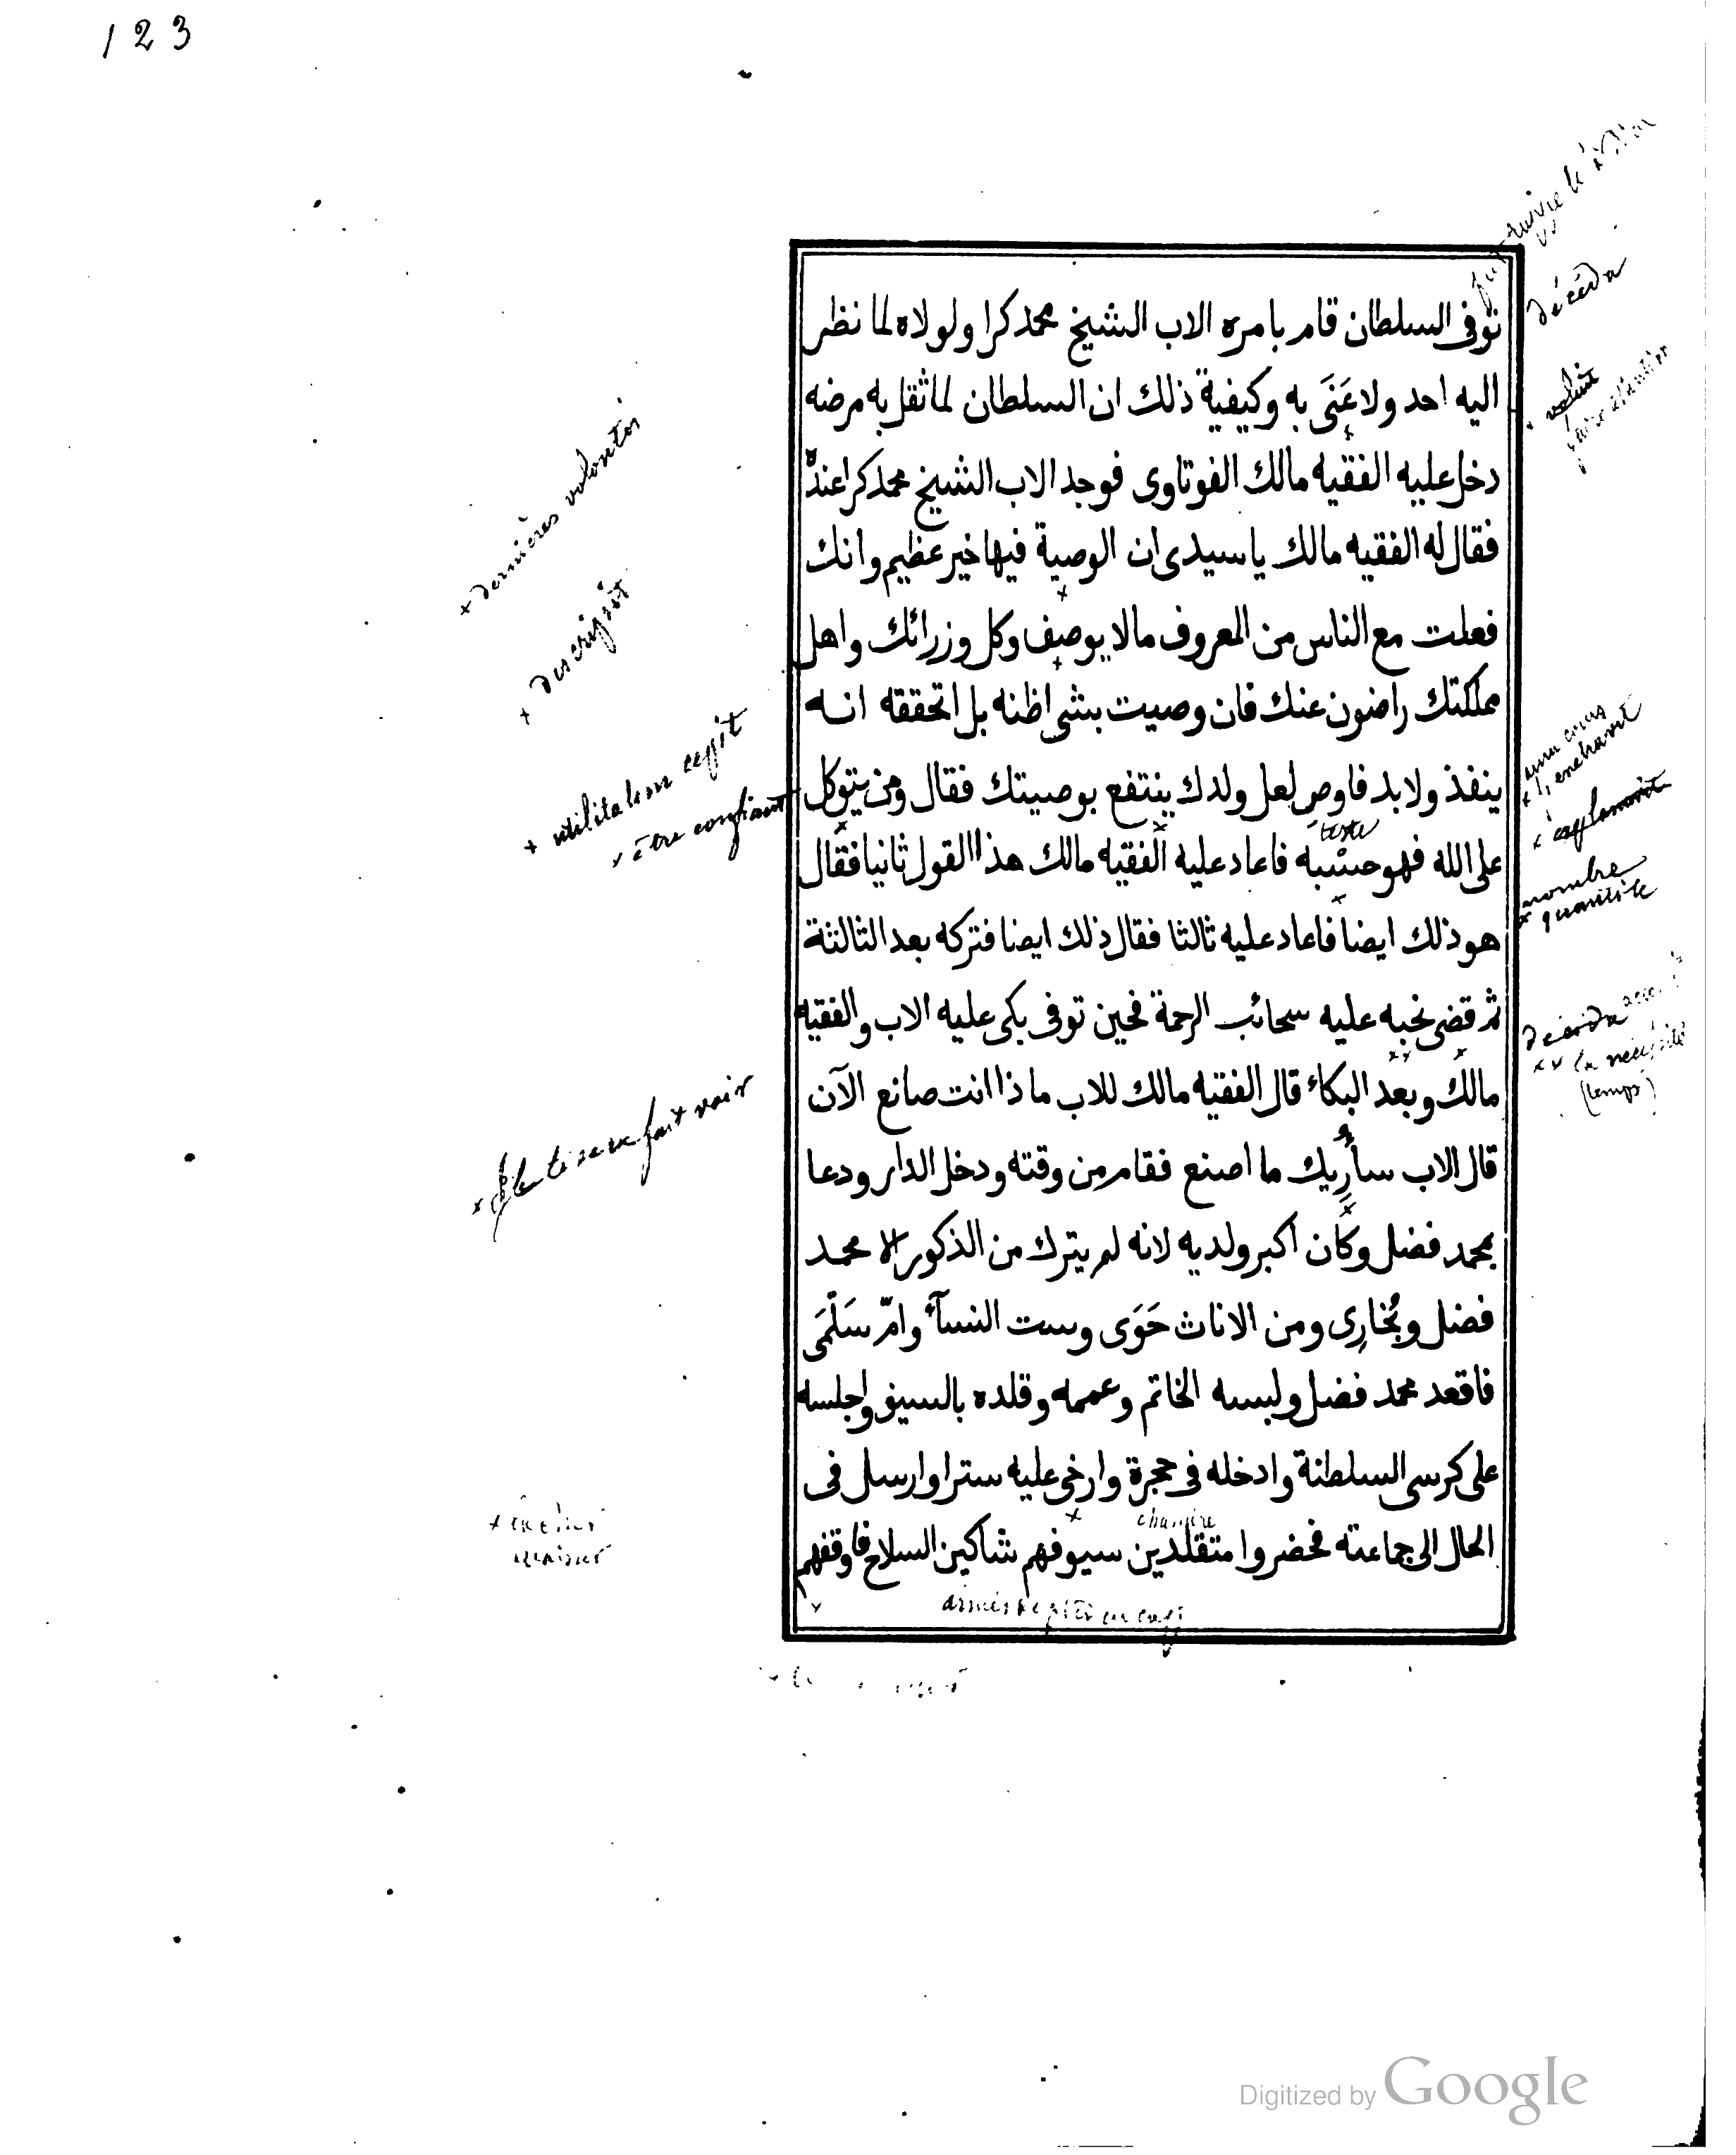 123
توفى السلطان قام بامره الاب الشيخ محمد كرا ولولاه لما نظر
اليه احد ولا عَنَى به وكيفية ذلك ان السلطان لما ثقل به مرضه
دخل عليه الفقيه مالك الفوتاوى فوجد الاب الشيخ محمد كرا عنده
فقال له الفقيه مالك يا سيدى ان الوصية فيها خير عظيم وانك
فعلت مع الناس من المعروف مالا يوصف وكل وزرائك واهل
مملكتك راضون عنك فان وصيت بشى اظنه بل اتحققه انه
ينفذ ولابد فاوص لعل ولدك ينتفع بوصيتك فقال ومن يتوكل
texte
على الله فهو حسبه فاعاد عليه الفقيه مالك هذا القول ثانيا فقال
هو ذلك ايضا فاعاد عليه ثالثا فقال ذلك ايضا فتركه بعد الثالثة
ثم قضى نحبه عليه سحائب الرحمة فحين توفى بكى عليه الاب والفقيه
مالك وبعد البكاء قال الفقيه مالك للاب ما ذا انت صانع الآن
قال الاب سأُرِيك ما اصنع فقام من وقته ودخل الدار ودعا
بمحمد فضل وكان اكبر ولديه لانه لم يترك من الذكور الا محمد
فضل وبُخارِى ومن الاناث حَوَى وست النسآء وامّ سَلْمَى
فاقعد محمد فضل ولبسه الخاتم وعممه وقلده بالسيف واجلسه
على كرسى السلطنة وادخله فى حجرة وارخى عليه سترا وارسل فى
chambre
الحال الى جماعته فحضروا متقلدين سيوفهم شاكين السلاح فاوقفهم
armés de pied en cap
décéda
+ dernières volontés
+ descripsit
+ utilitatem cepit
x être confiant
nombre
x quantité
décéda
x x la nécessité
(temps)
x je te ferai voir